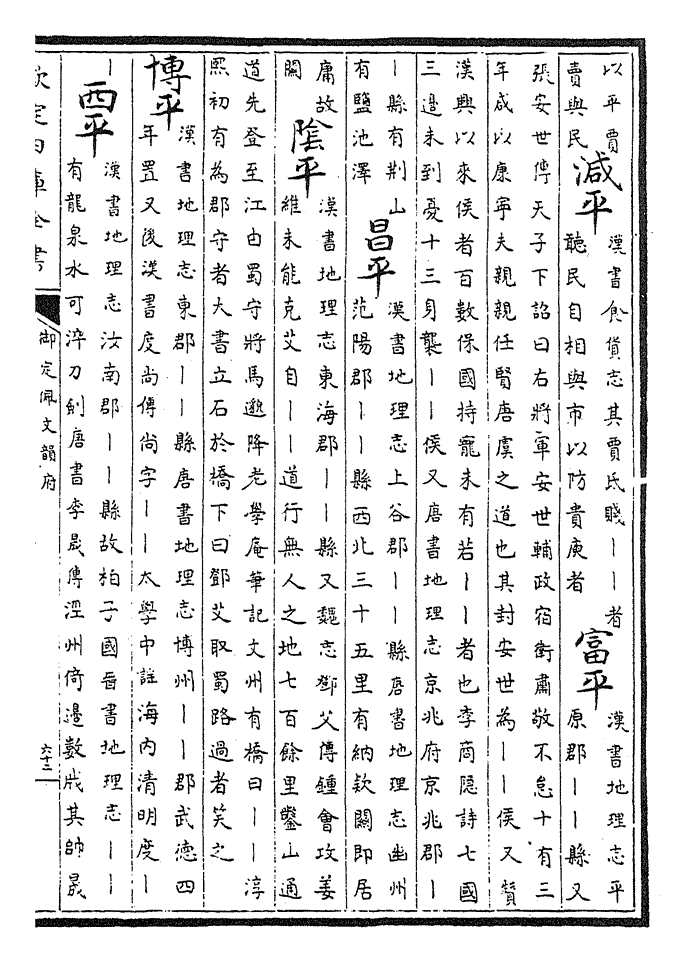 以平賈
賣與民
減平
漢書食貨志其賈氐賤｜｜者
聽民自相與市以防貴庾者
富平
漢書地理志平
原郡｜｜縣又
張安世傳天子下詔曰右將軍安世輔政宿衛肅敬不怠十有三
年咸以康寧夫親親任賢唐虞之道也其封安世為｜｜侯又贊
漢興以來侯者百數保國持寵未有若｜｜者也李商隱詩七國
三邉未到憂十三身襲｜｜侯又唐書地理志京兆府京兆郡｜
｜縣有荆山
有鹽池澤
昌平
漢書地理志上谷郡｜｜縣唐書地理志幽州
范陽郡｜｜縣西北三十五里有納欵關即居
庸故
關
陰平
漢書地理志東海郡｜｜縣又魏志鄧艾傳鍾會攻姜
維未能克艾自｜｜道行無人之地七百餘里鑿山通
道先登至江由蜀守將馬邈降老學庵筆記文州有橋曰｜｜淳
熙初有為郡守者大書立石於橋下曰鄧艾取蜀路過者笑之
博平
漢書地理志東郡｜｜縣唐書地理志博州｜｜郡武德四
年置又後漢書度尚傳尚字｜｜太學中註海內清明度｜
｜
西平
漢書地理志汝南郡｜｜縣故柏子國晉書地理志｜｜
有龍泉水可淬刀劍唐書李晟傳涇州倚邉數戕其帥晟
欽定四庫全書
御定佩文韻府
六十二